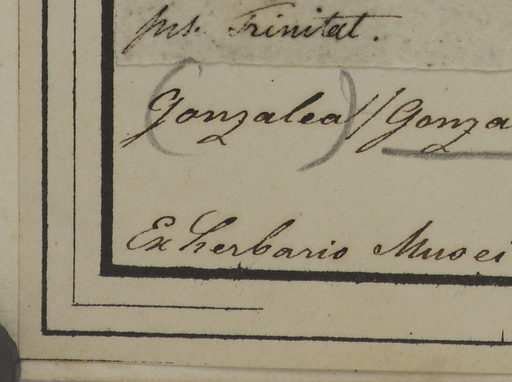 ins. Trinitat.
(Gonzalea)//Gonza
Ex herbario Musei